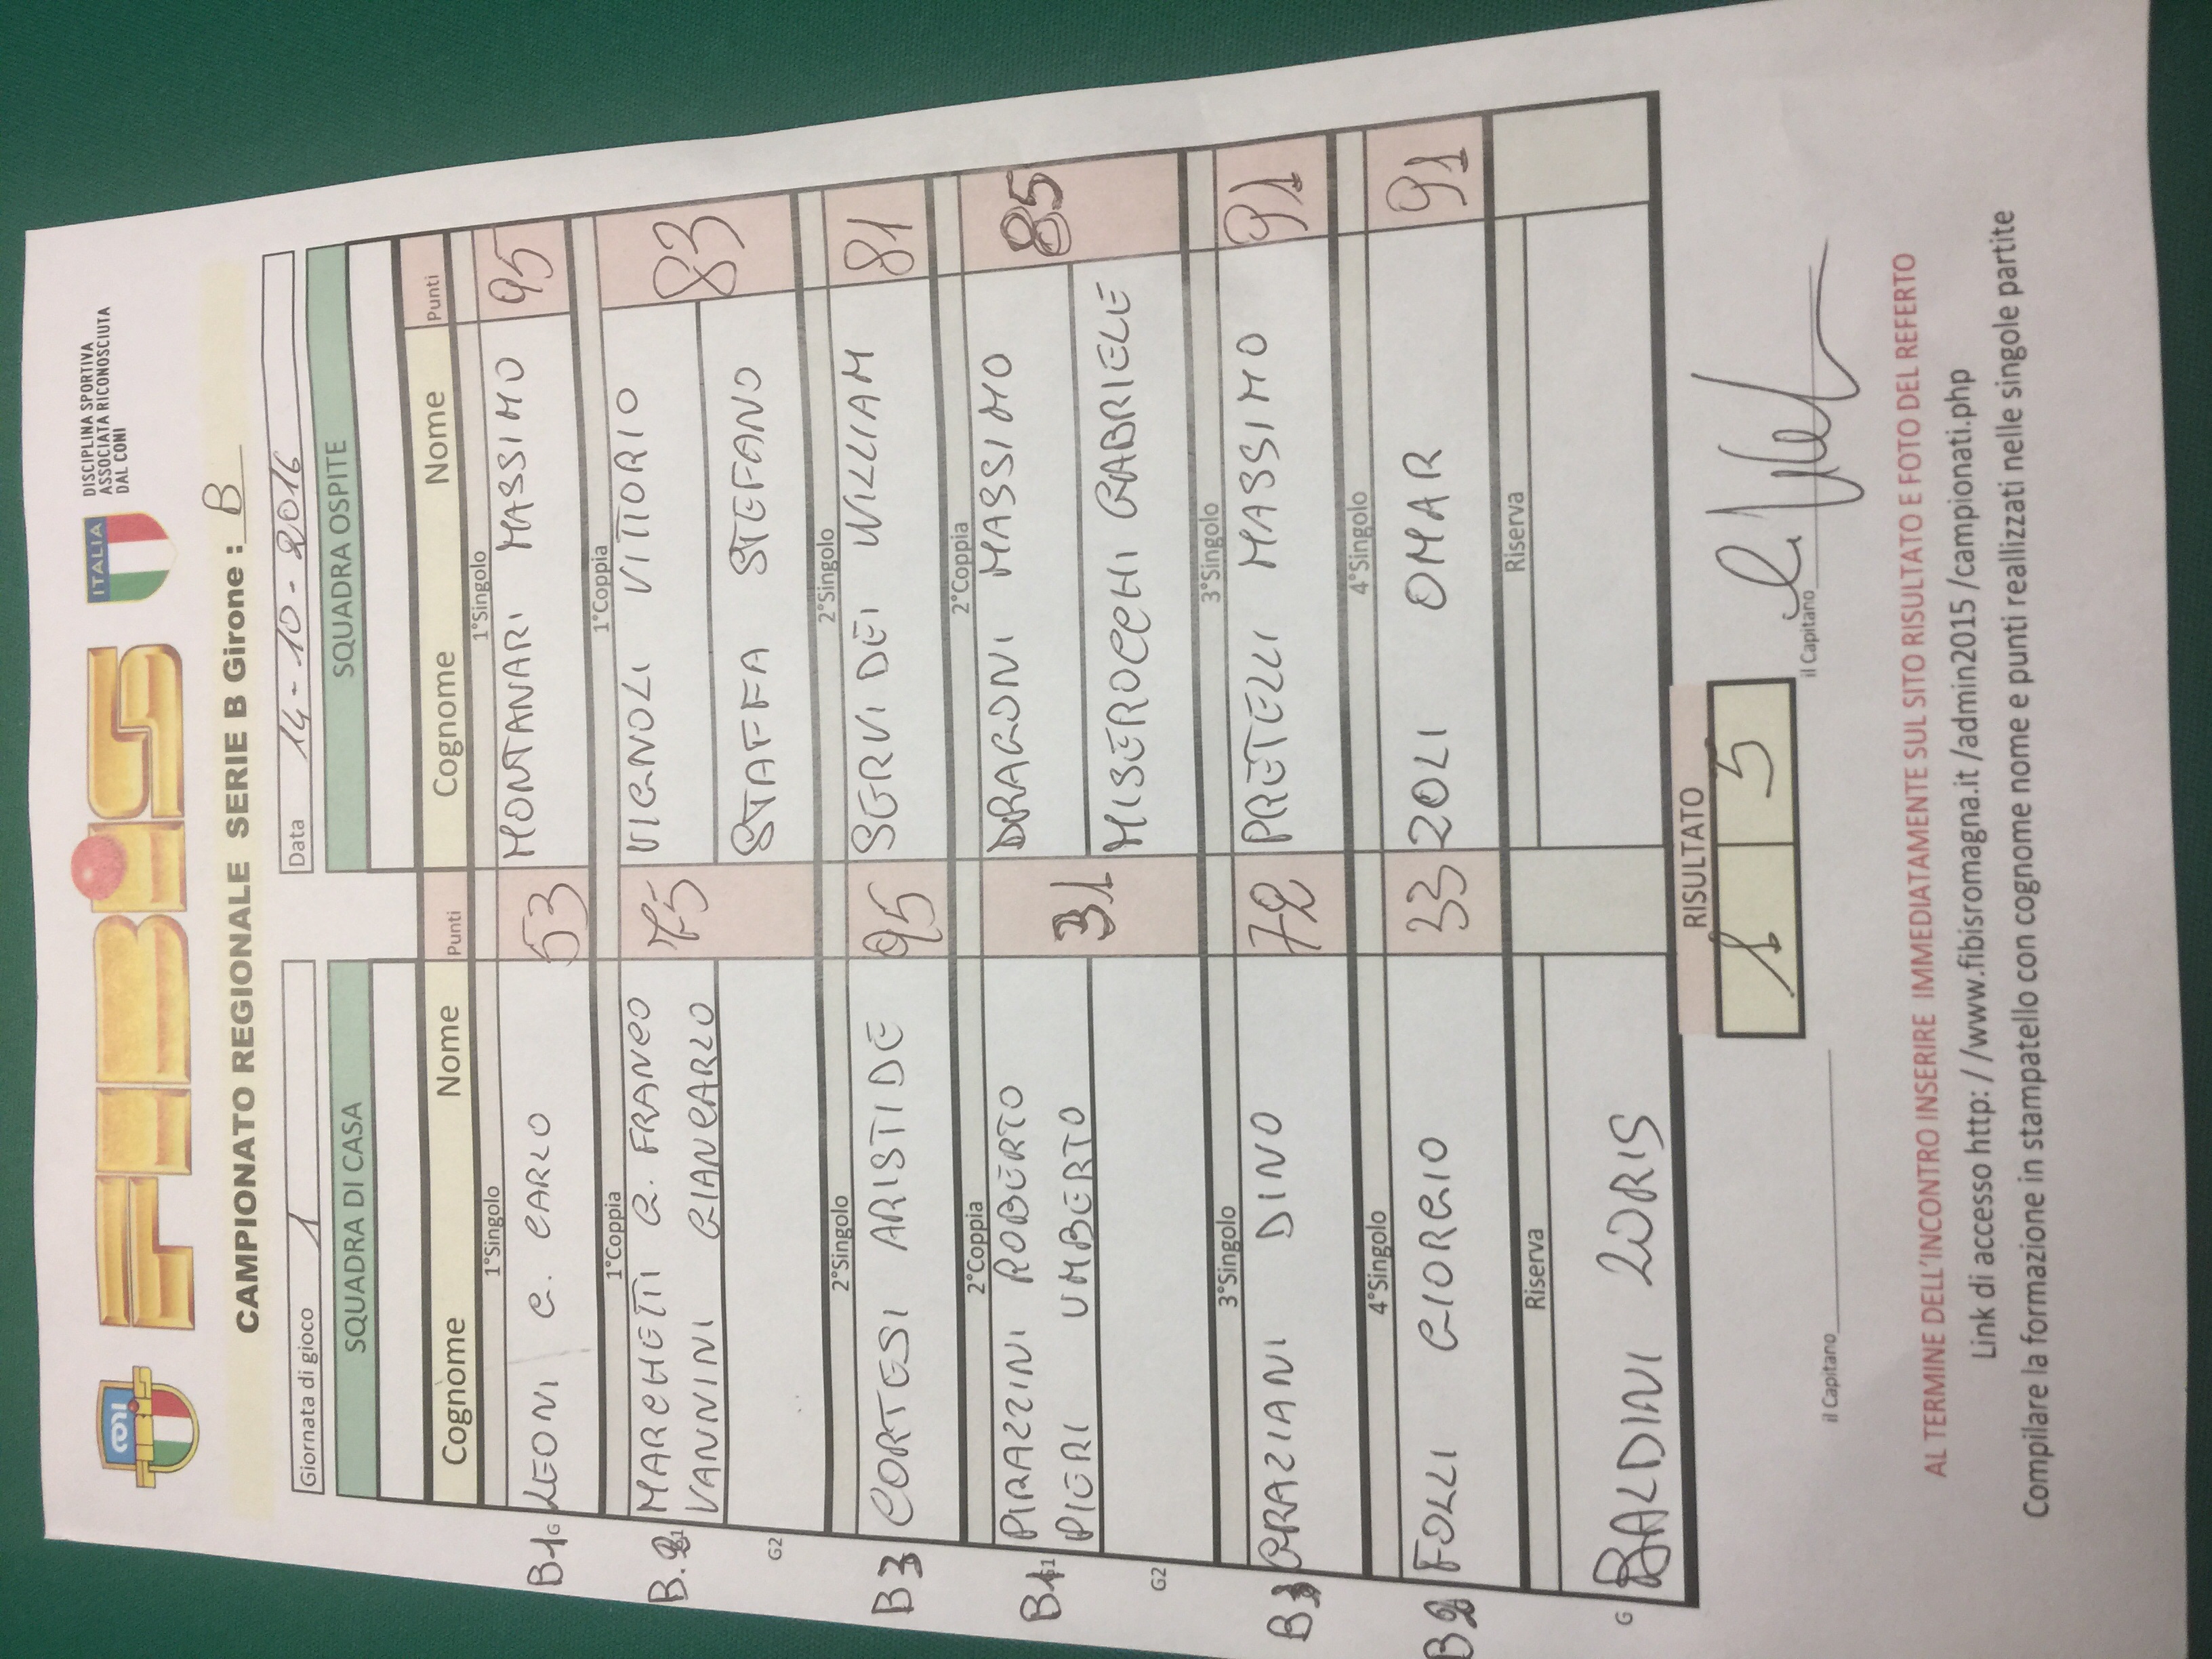 CONI
FIBiS
FIBiS
ITALIA
DISCIPLINA SPORTIVA
ASSOCIATA RICONOSCIUTA
DAL CONI
CAMPIONATO REGIONALE SERIE B Girone : B
Giornata di gioco 1
Data 14-10-2016
SQUADRA DI CASA
SQUADRA OSPITE
Cognome Nome Punti Cognome Nome Punti
1°Singolo 1°Singolo
B1 G LEONI C. CARLO 53 MONTANARI MASSIMO 95
1°Coppia 1°Coppia
B.2 G1 MARCHETTI G. FRANCO 75 VIGNOLI VITTORIO 83
VANNINI GIANCARLO
G2 STAFFA STEFANO
2°Singolo 2°Singolo
B3 CORTESI ARISTIDE 95 SERVIDEI WILLIAM 81
2°Coppia 2°Coppia
B1 G1 PIRAZZINI ROBERTO 31 DRAGONI MASSIMO 85
PIERI UMBERTO
G2 MISEROCCHI GABRIELE
3°Singolo 3°Singolo
B3 GRAZIANI DINO 72 PRETELLI MASSIMO 91
4°Singolo 4°Singolo
B2 FOLLI GIORGIO 33 ZOLI OMAR 91
Riserva Riserva
G BALDINI LORIS
RISULTATO
1 5
il Capitano
il Capitano
AL TERMINE DELL'INCONTRO INSERIRE IMMEDIATAMENTE SUL SITO RISULTATO E FOTO DEL REFERTO
Link di accesso http: / /www.fibisromagna.it /admin2015 /campionati.php
Compilare la formazione in stampatello con cognome nome e punti reallizzati nelle singole partite